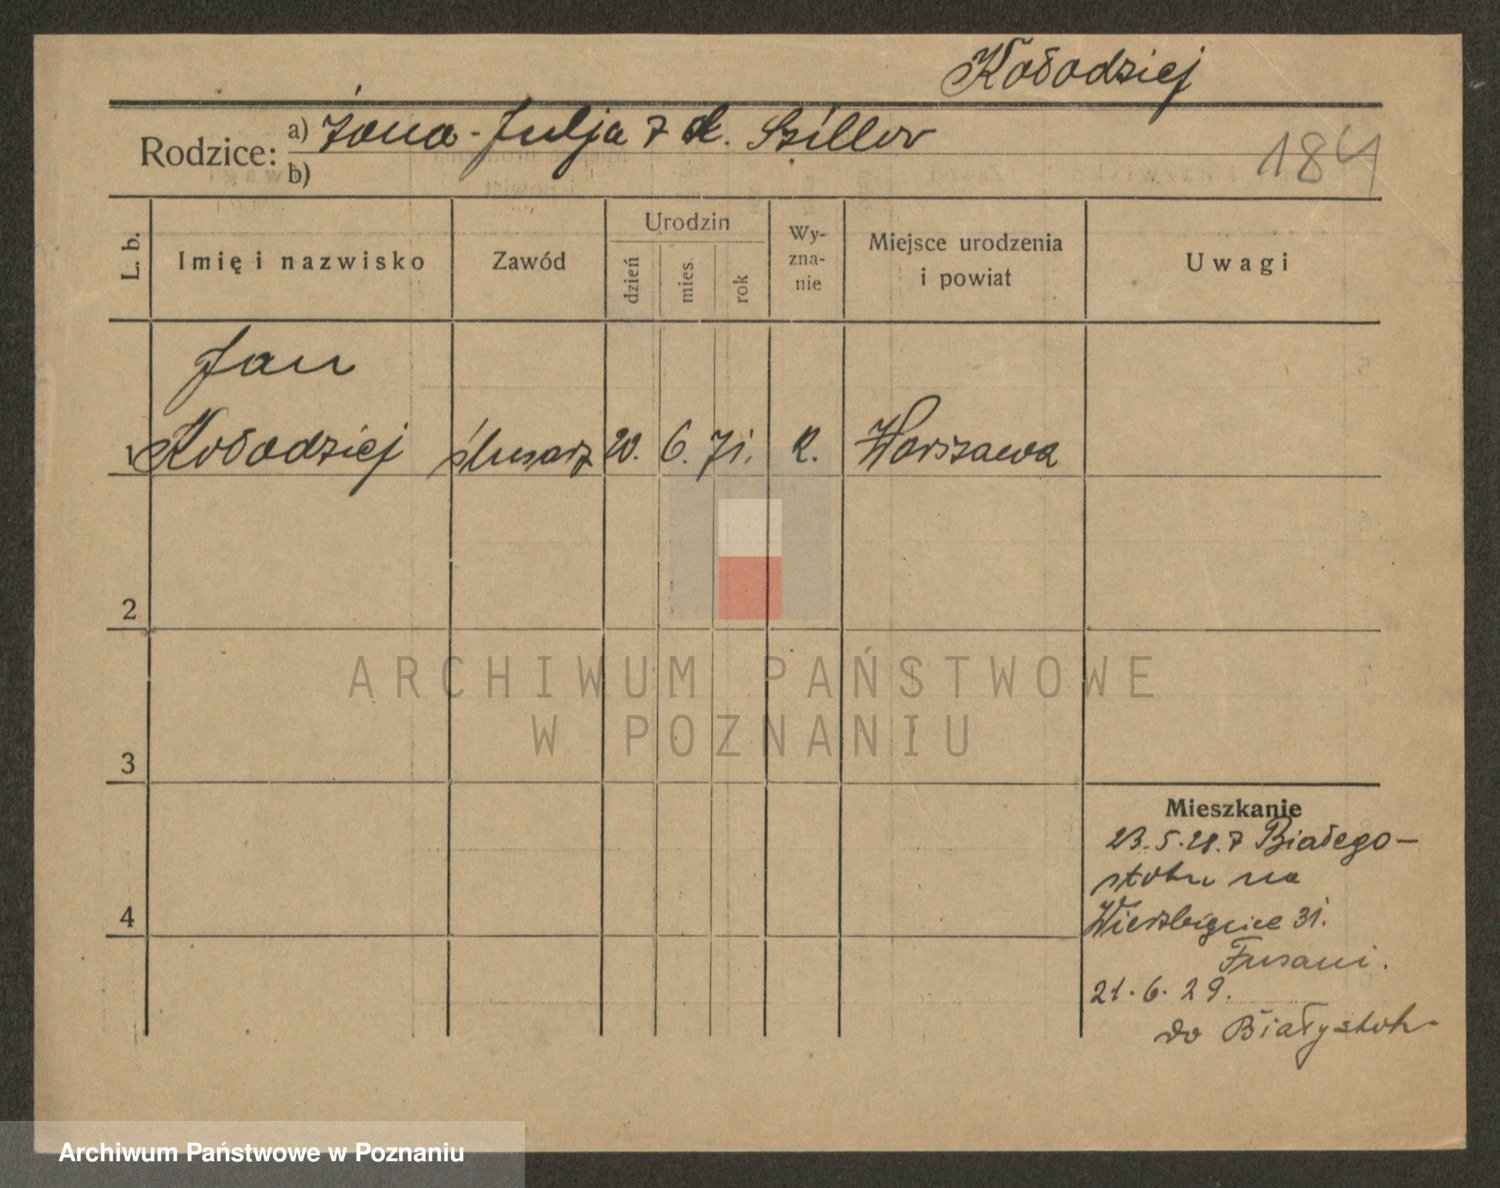 Kołodziej
Rodzice: a) żona - Julja z d. Sziller
b)
184
L. b. Imię i nazwisko Zawód Urodzin dzień mies. rok Wyznanie Miejsce urodzenia i powiat Uwagi
Jan
1 Kołodziej ślusarz 20. 6. 71. k. Warszawa
2
3
4
Mieszkanie
23.5.28. z Białego-
stoku na
Wierzbięcice 31.
21.6.29.
do Białystok
ARCHIWUM PAŃSTWOWE
W POZNANIU
Archiwum Państwowe w Poznaniu